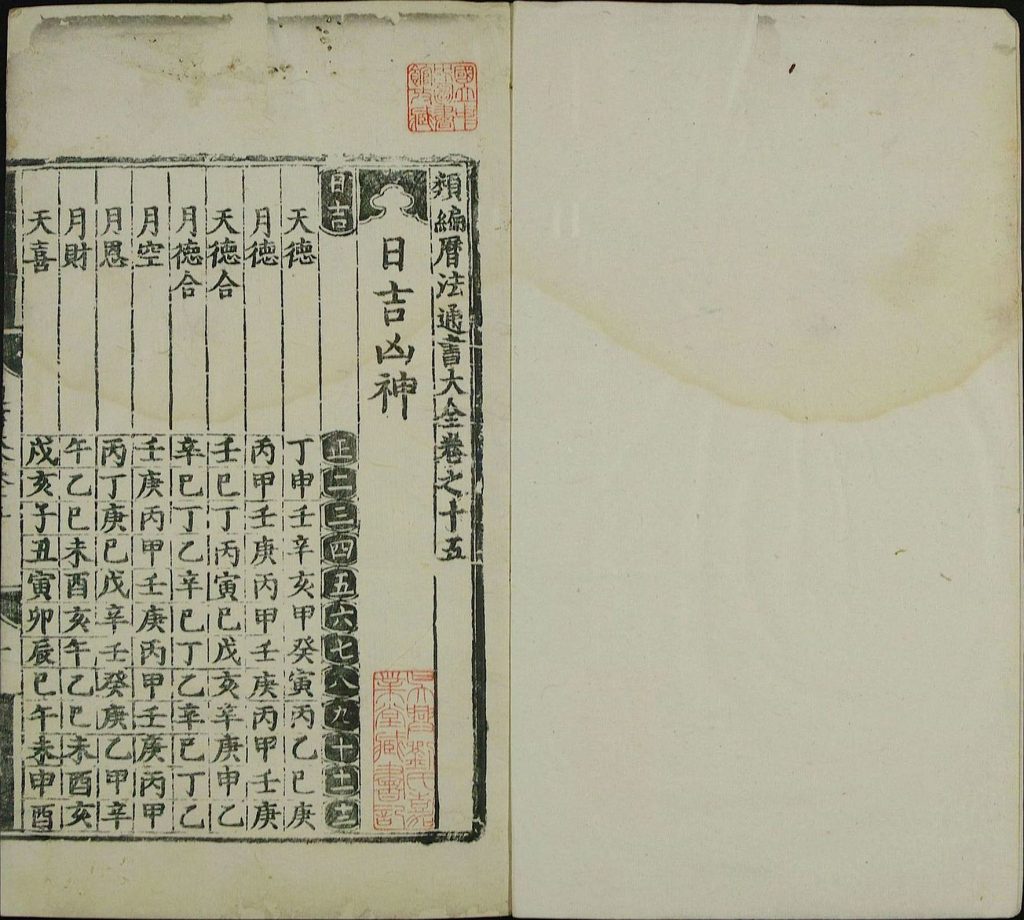 國立中
央圖書
館收藏
類編曆法通書大全卷之十五
日吉凶神
吳興劉氏嘉
業堂藏書記
日吉 正二三四五六七八九十十一十二
天德 丁申壬辛亥甲癸寅丙乙巳庚
月德 丙甲壬庚丙甲壬庚丙甲壬庚
天德合 壬巳丁丙寅巳戊亥辛庚申乙
月德合 辛巳丁乙辛巳丁乙辛巳丁乙
月空 壬庚丙甲壬庚丙甲壬庚丙甲
月恩 丙丁庚巳戊辛壬癸庚乙甲辛
月財 午乙巳未酉亥午乙巳未酉亥
天喜 戌亥子丑寅卯辰巳午未申酉